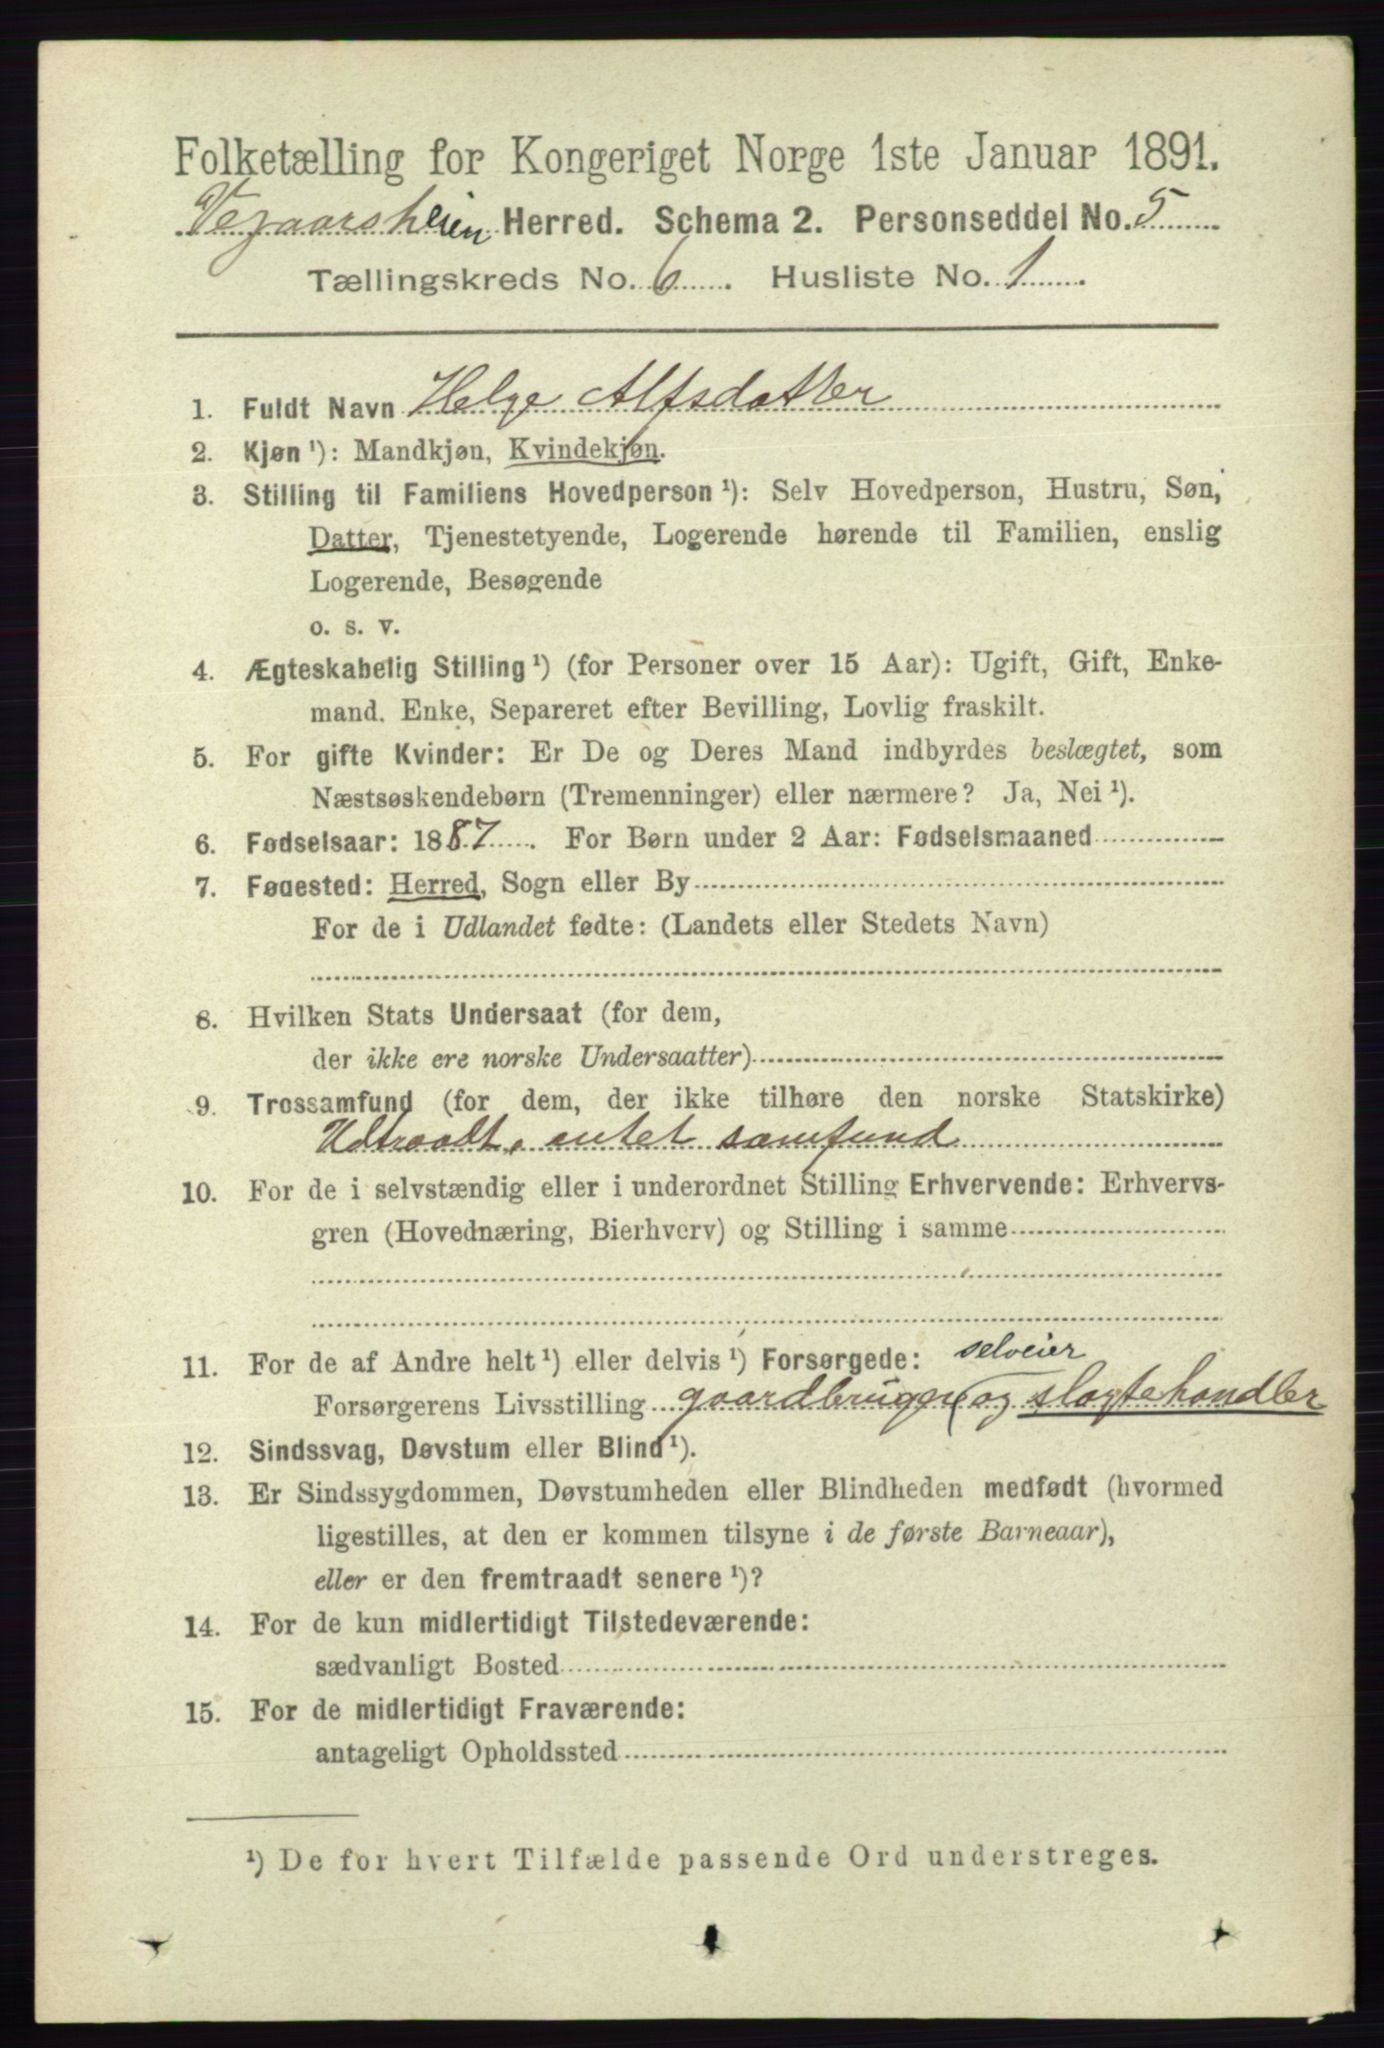 Folketælling for Kongeriget Norge 1ste Januar 1891.
Vegaarsheien Herred. Schema 2. Personseddel No. 5
Tællingskreds No. 6. Husliste No. 1.
1. Fuldt Navn Helge Alfsdatter
2. Kjøn ¹): Mandkjøn, Kvindekjøn.
3. Stilling til Familiens Hovedperson ¹): Selv Hovedperson, Hustru, Søn,
Datter, Tjenestetyende, Logerende hørende til Familien, enslig
Logerende, Besøgende
o. s. v.
4. Ægteskabelig Stilling ¹) (for Personer over 15 Aar): Ugift, Gift, Enke-
mand. Enke, Separeret efter Bevilling, Lovlig fraskilt.
5. For gifte Kvinder: Er De og Deres Mand indbyrdes beslægtet, som
Næstsøskendebørn (Tremenninger) eller nærmere? Ja, Nei ¹).
6. Fødselsaar: 1887. For Børn under 2 Aar: Fødselsmaaned
7. Fødested: Herred, Sogn eller By
For de i Udlandet fødte: (Landets eller Stedets Navn)
8. Hvilken Stats Undersaat (for dem,
der ikke ere norske Undersaatter)
9. Trossamfund (for dem, der ikke tilhøre den norske Statskirke)
Udtraadt, intet samfund
10. For de i selvstændig eller i underordnet Stilling Erhvervende: Erhvervs-
gren (Hovednæring, Bierhverv) og Stilling i samme
11. For de af Andre helt ¹) eller delvis ¹) Forsørgede: selveier
Forsørgerens Livsstilling gaardbruger (og slagtehandler
12. Sindssvag, Døvstum eller Blind ¹).
13. Er Sindssygdommen, Døvstumheden eller Blindheden medfødt (hvormed
ligestilles, at den er kommen tilsyne i de første Barneaar),
eller er den fremtraadt senere ¹)?
14. For de kun midlertidigt Tilstedeværende:
sædvanligt Bosted
15. For de midlertidigt Fraværende:
antageligt Opholdssted
¹) De for hvert Tilfælde passende Ord understreges.